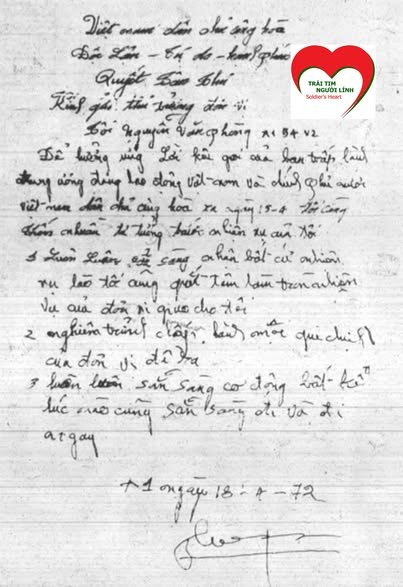 Việt nam dân chủ cộng hòa
Độc Lập - Tự do - hạnh phúc
Quyết tâm thư
Kính gửi thủ trưởng đơn vị
Tôi Nguyễn Văn Phòng
TRÁI TIM
NGƯỜI LÍNH
Soldier's Heart
Để hưởng ứng Lời kêu gọi của ban chấp hành
trung ương đảng lao động việt nam và chính phủ nước
việt nam dân chủ cộng hòa ra ngày 15-4 tôi càng
thấm nhuần tư tưởng trước nhiên vụ của tôi
1 Luôn Luôn sẵn sàng nhân bất cứ nhiên
vụ lào tôi cũng quết tâm làm tròn nhiên
vụ của đơn vị giao cho tôi
2 nghiêm trỉnh chấp hành mọi qui chỉ
của đơn vị đề ra
3 luôn luôn sẵn sàng cơ động bất kể
lúc nào cũng sẵn sàng đi và đi
ngay
ngày 18-4-72